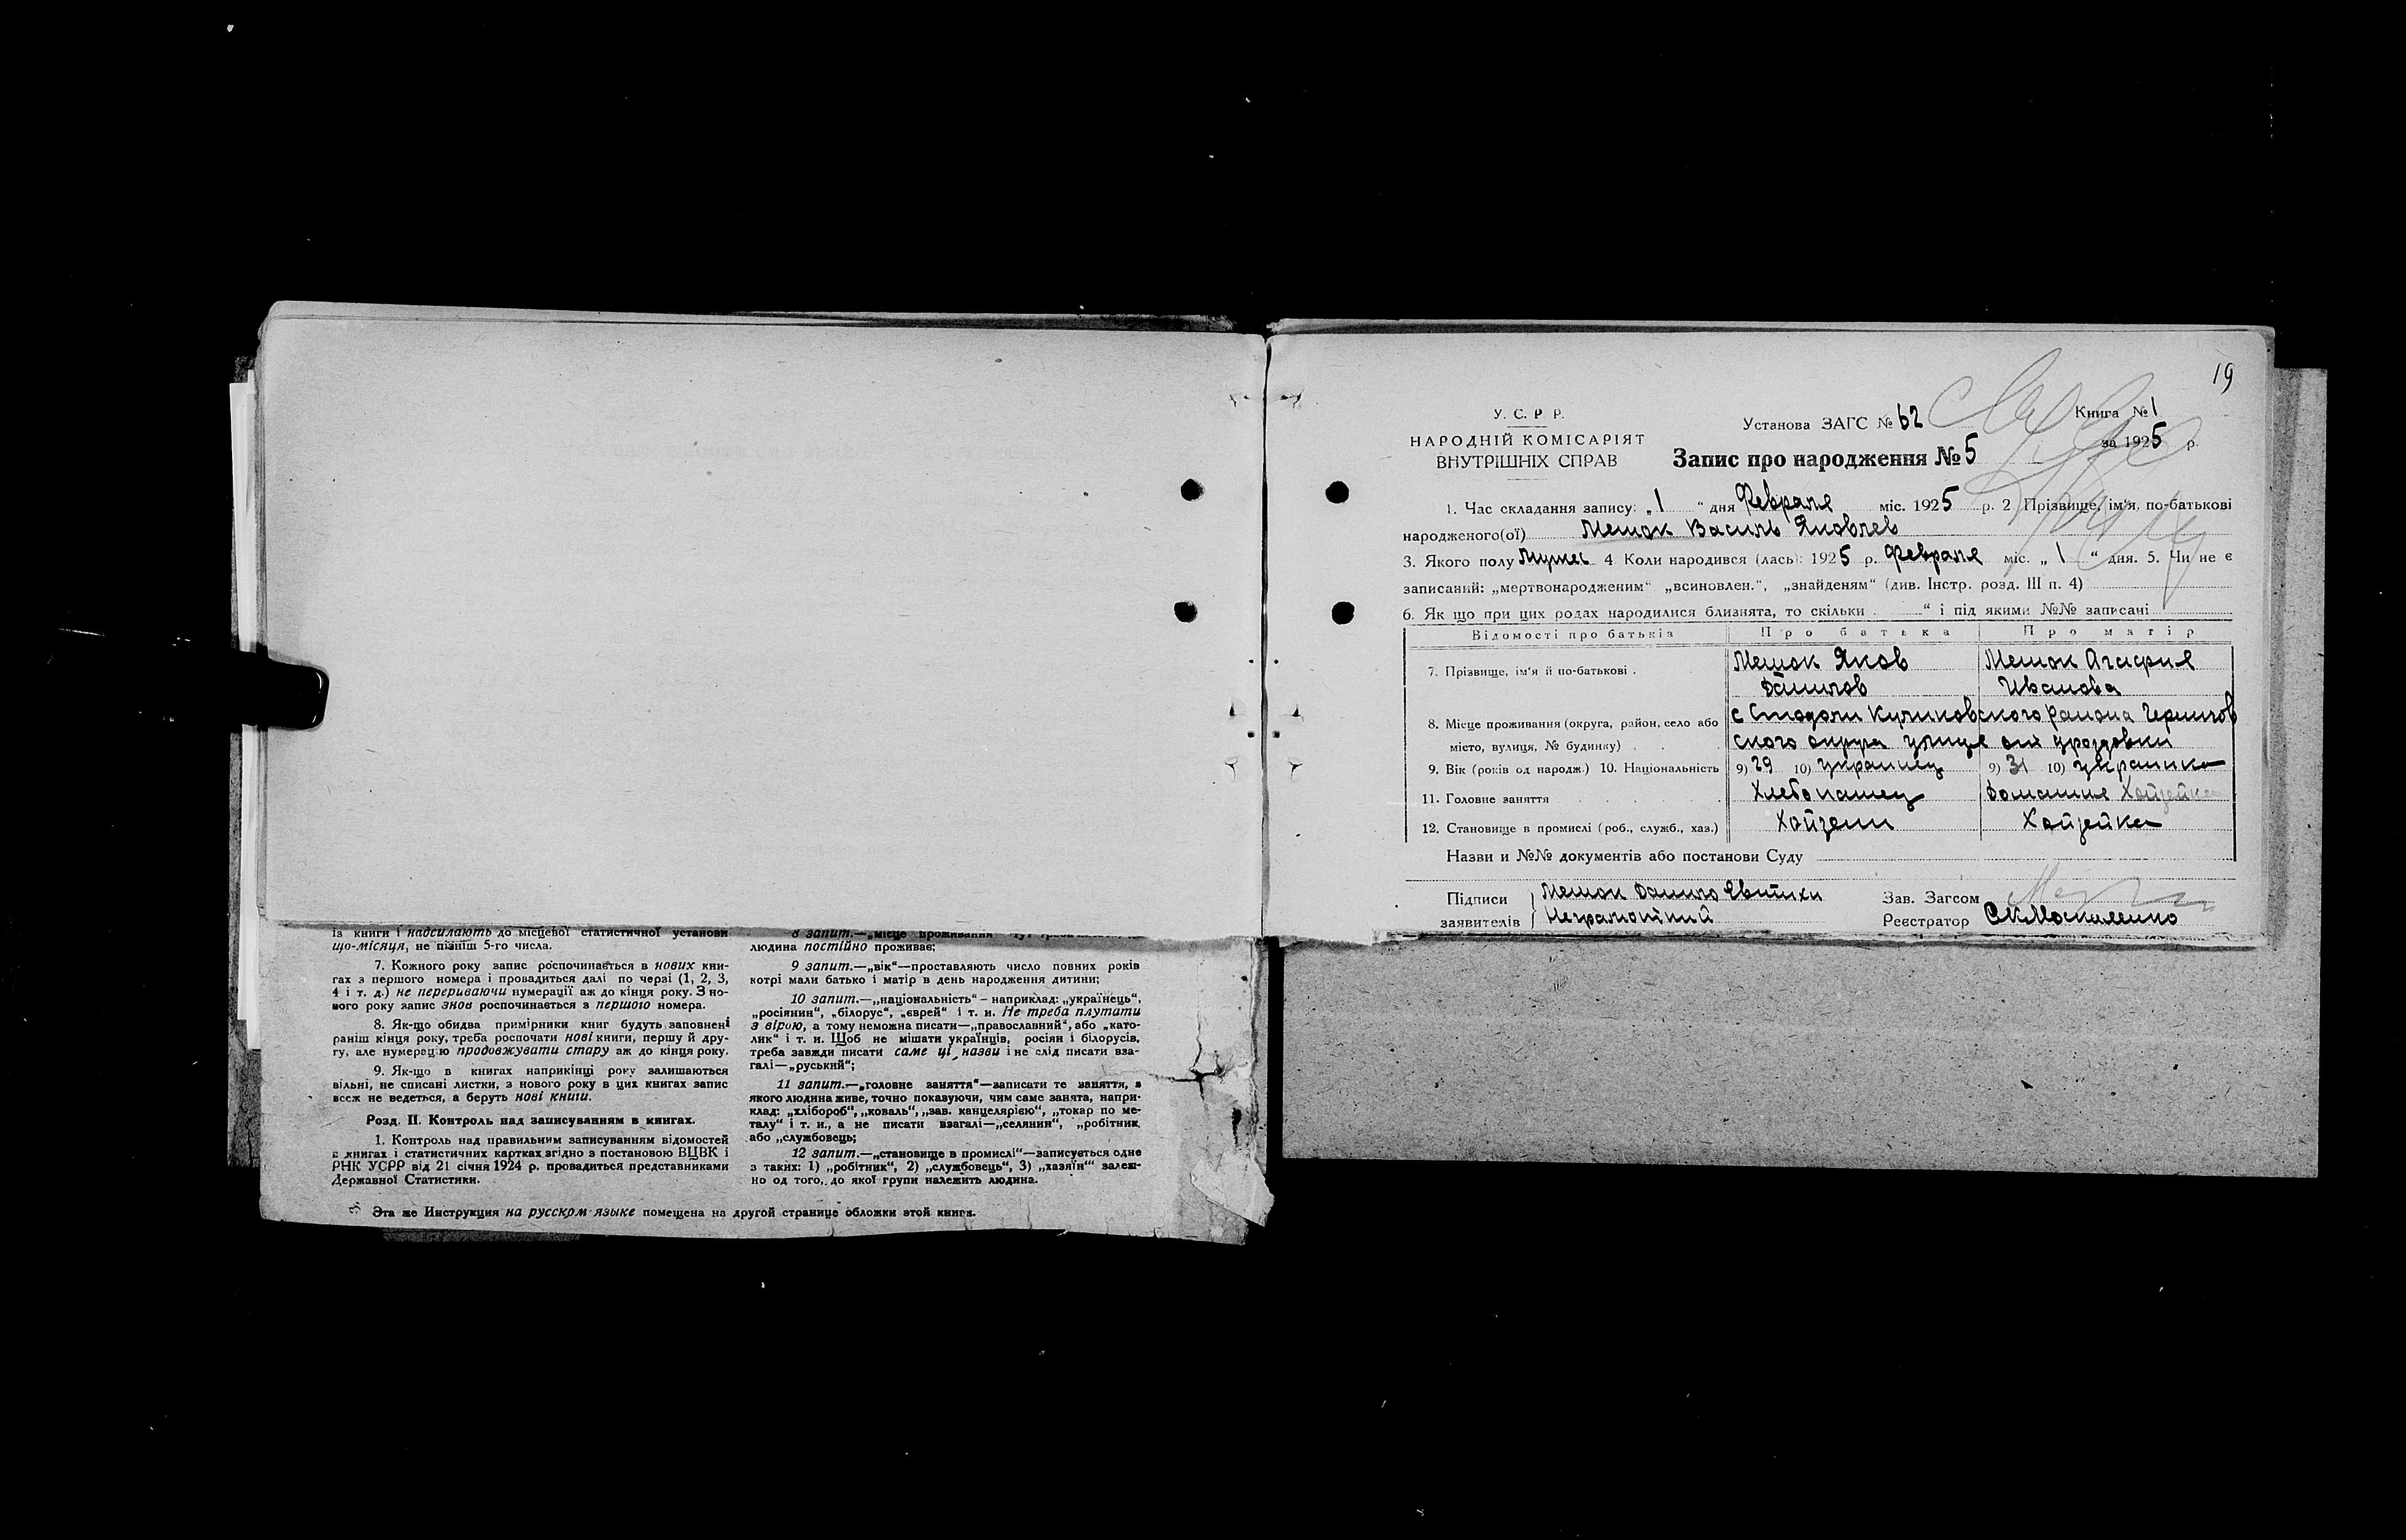 із книги і надсилають до місцевої статистичної установи
що-місяця, не пізніш 5-го числа.
7. Кожного року запис роспочинається в нових кни-
гах з першого номера і провадиться далі по черзі (1, 2, 3,
4 і т. д.) не перериваючи нумерації аж до кінця року. З но-
вого року запис знов роспочинається з першого номера.
8. Як-що обидва примірники книг будуть заповнені
раніш кінця року, треба роспочати нові книги, першу й дру-
гу, але нумерацію продовжувати стару аж до кінця року.
9. Як-що в книгах наприкінці року залишаються
вільні, не списані листки, з нового року в цих книгах запис
всеж не ведеться, а беруть нові книги.
Розд. II. Контроль над записуванням в книгах.
1. Контроль над правильним записуванням відомостей
в книгах і статистичних картках згідно з постановою ВЦВК і
РНК УСРР від 21 січня 1924 р. провадиться представниками
Державної Статистики.
8 запит.—„місце проживання
людина постійно проживає;
9 запит.—„вік“—проставляють число повних років
котрі мали батько і матір в день народження дитини;
10 запит.—„національність“ – наприклад: „українець“,
„росіянин“, „білорус“, „єврей“ і т. и. Не треба плутати
з вірою, а тому неможна писати—„православний“, або „като-
лик“ і т. и. Щоб не мішати українців, росіян і білорусів,
треба завжди писати саме ці назви і не слід писати вза-
галі—„руський“;
11 запит.—„головне заняття“—записати те заняття, з
якого людина живе, точно показуючи, чим саме занята, напри-
клад: „хлібороб“, „коваль“, „зав. канцелярією“, „токар по ме-
талу“ і т. и., а не писати взагалі—„селянин“, „робітник
або „службовець;
12 запит.—„становище в промислі“—записується одне
з таких: 1) „робітник“, 2) „службовець“, 3) „хазяїн“ залеж-
но од того, до якої групи належить людина.
Эта же Инструкция на русском языке помещена на другой странице обложки этой книги.
19
У. С. Р Р.
НАРОДНІЙ КОМІСАРІЯТ
ВНУТРІШНІХ СПРАВ
Установа ЗАГС № 62
Книга № 1
за 1925 р.
Запис про народження № 5
1. Час складання запису: „1“ дня Февраля міс. 1925 р. 2 Прізвище, ім'я, по-батькові
народженого(ої) Мешок Василь Яковлев
3. Якого полу Мужес 4 Коли народився (лась): 1925 р. Февраля міс. „1“ дня. 5. Чи не є
записаний: „мертвонародженим“ „всиновлен.“, „знайденям“ (див. Інстр. розд. III п. 4)
6. Як що при цих родах народилися близнята, то скільки “ і під якими №№ записані
Відомості про батьків Про батька Про матір
7. Прізвище, ім'я й по-батькові . Мешок Яков Мешок Агафия
Данилов Иванова
8. Місце проживання (округа, район, село або с Стодоли Куликовского района Чернигов
місто, вулиця, № будинку) . . . ского округа улице от дроздовки
9. Вік (років од народж.) 10. Національність 9) 29 10) украинец 9) 31 10) украинка
11. Головне заняття . . . . Хлебопашец Домашня Хозяйка
12. Становище в промислі (роб., служб., хаз.) Хойзеин Хойзейка
Назви и №№ документів або постанови Суду
Підписи Мешок Данило Евтихи Зав. Загсом
заявителів Неграмотний Реєстратор